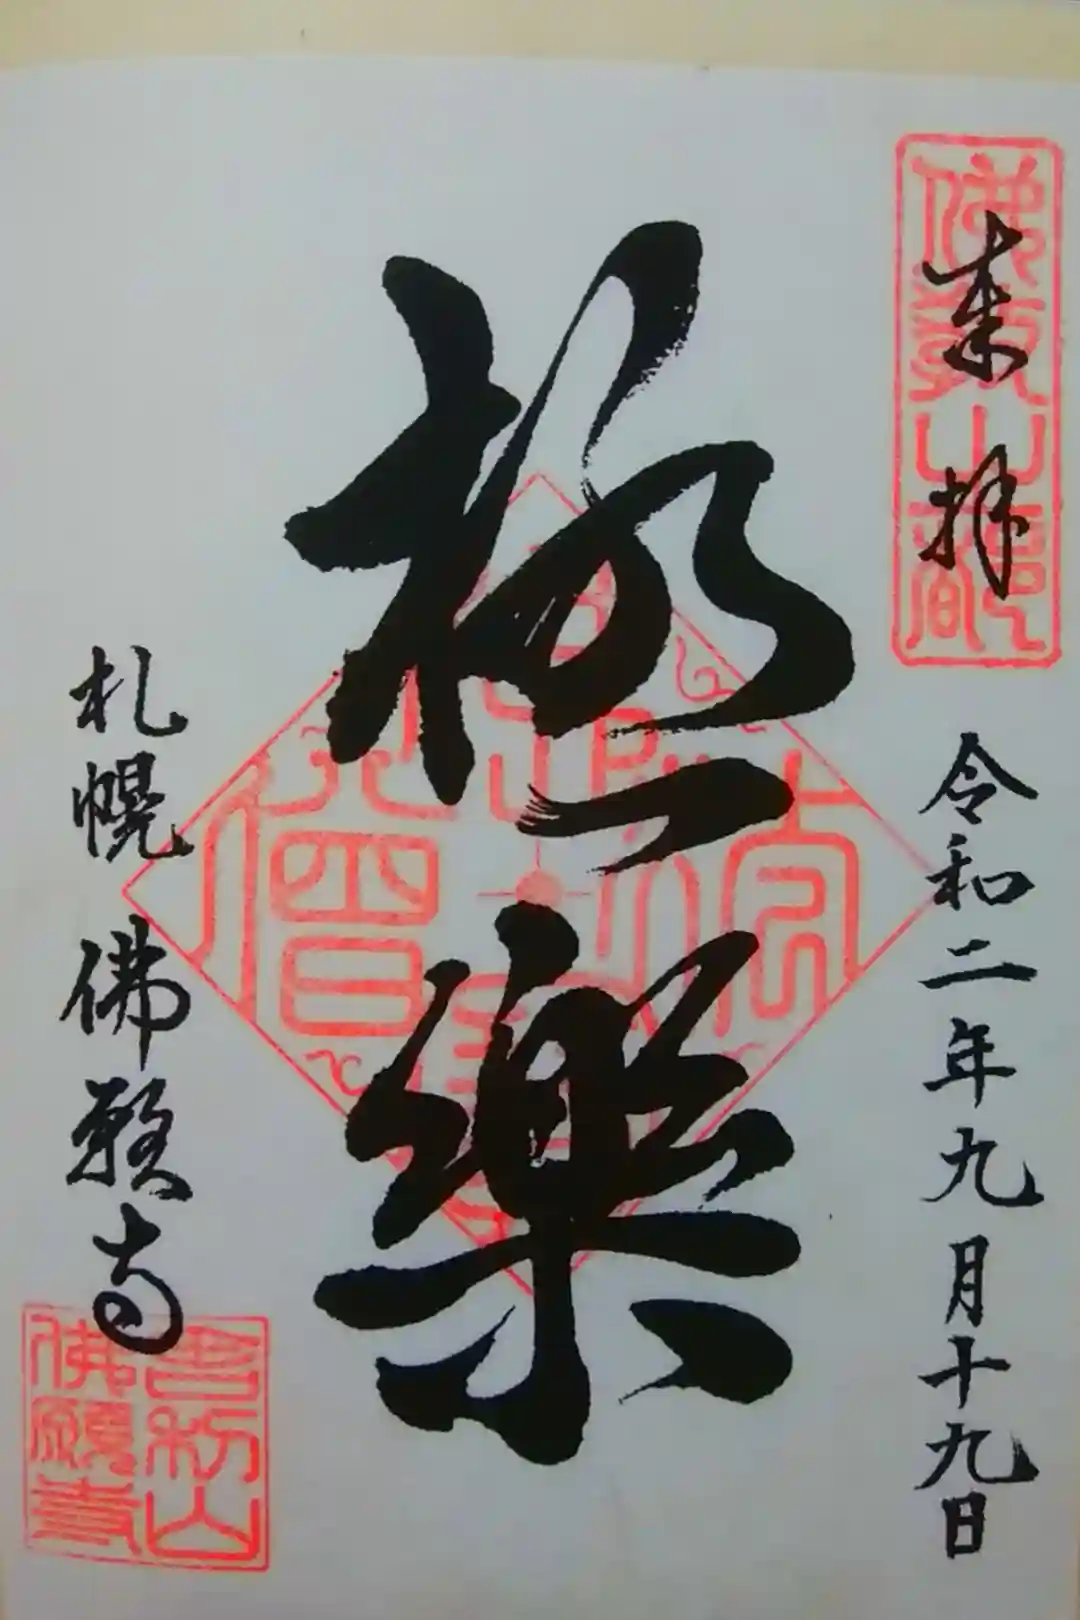 来拝
令和二年九月十九日
極樂
札幌 佛願寺
舎利山
佛願寺